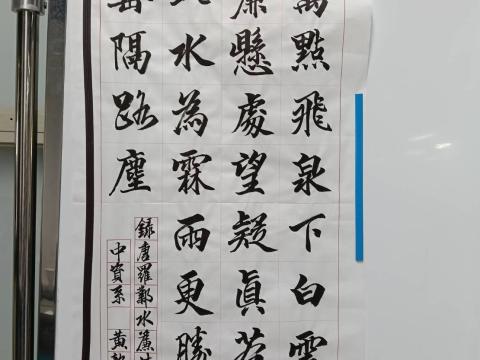 萬點飛泉下白雲
簾懸處望疑真若
此水為霖雨更勝
岳隔路塵
錄唐羅鄴水簾
中資系 黃